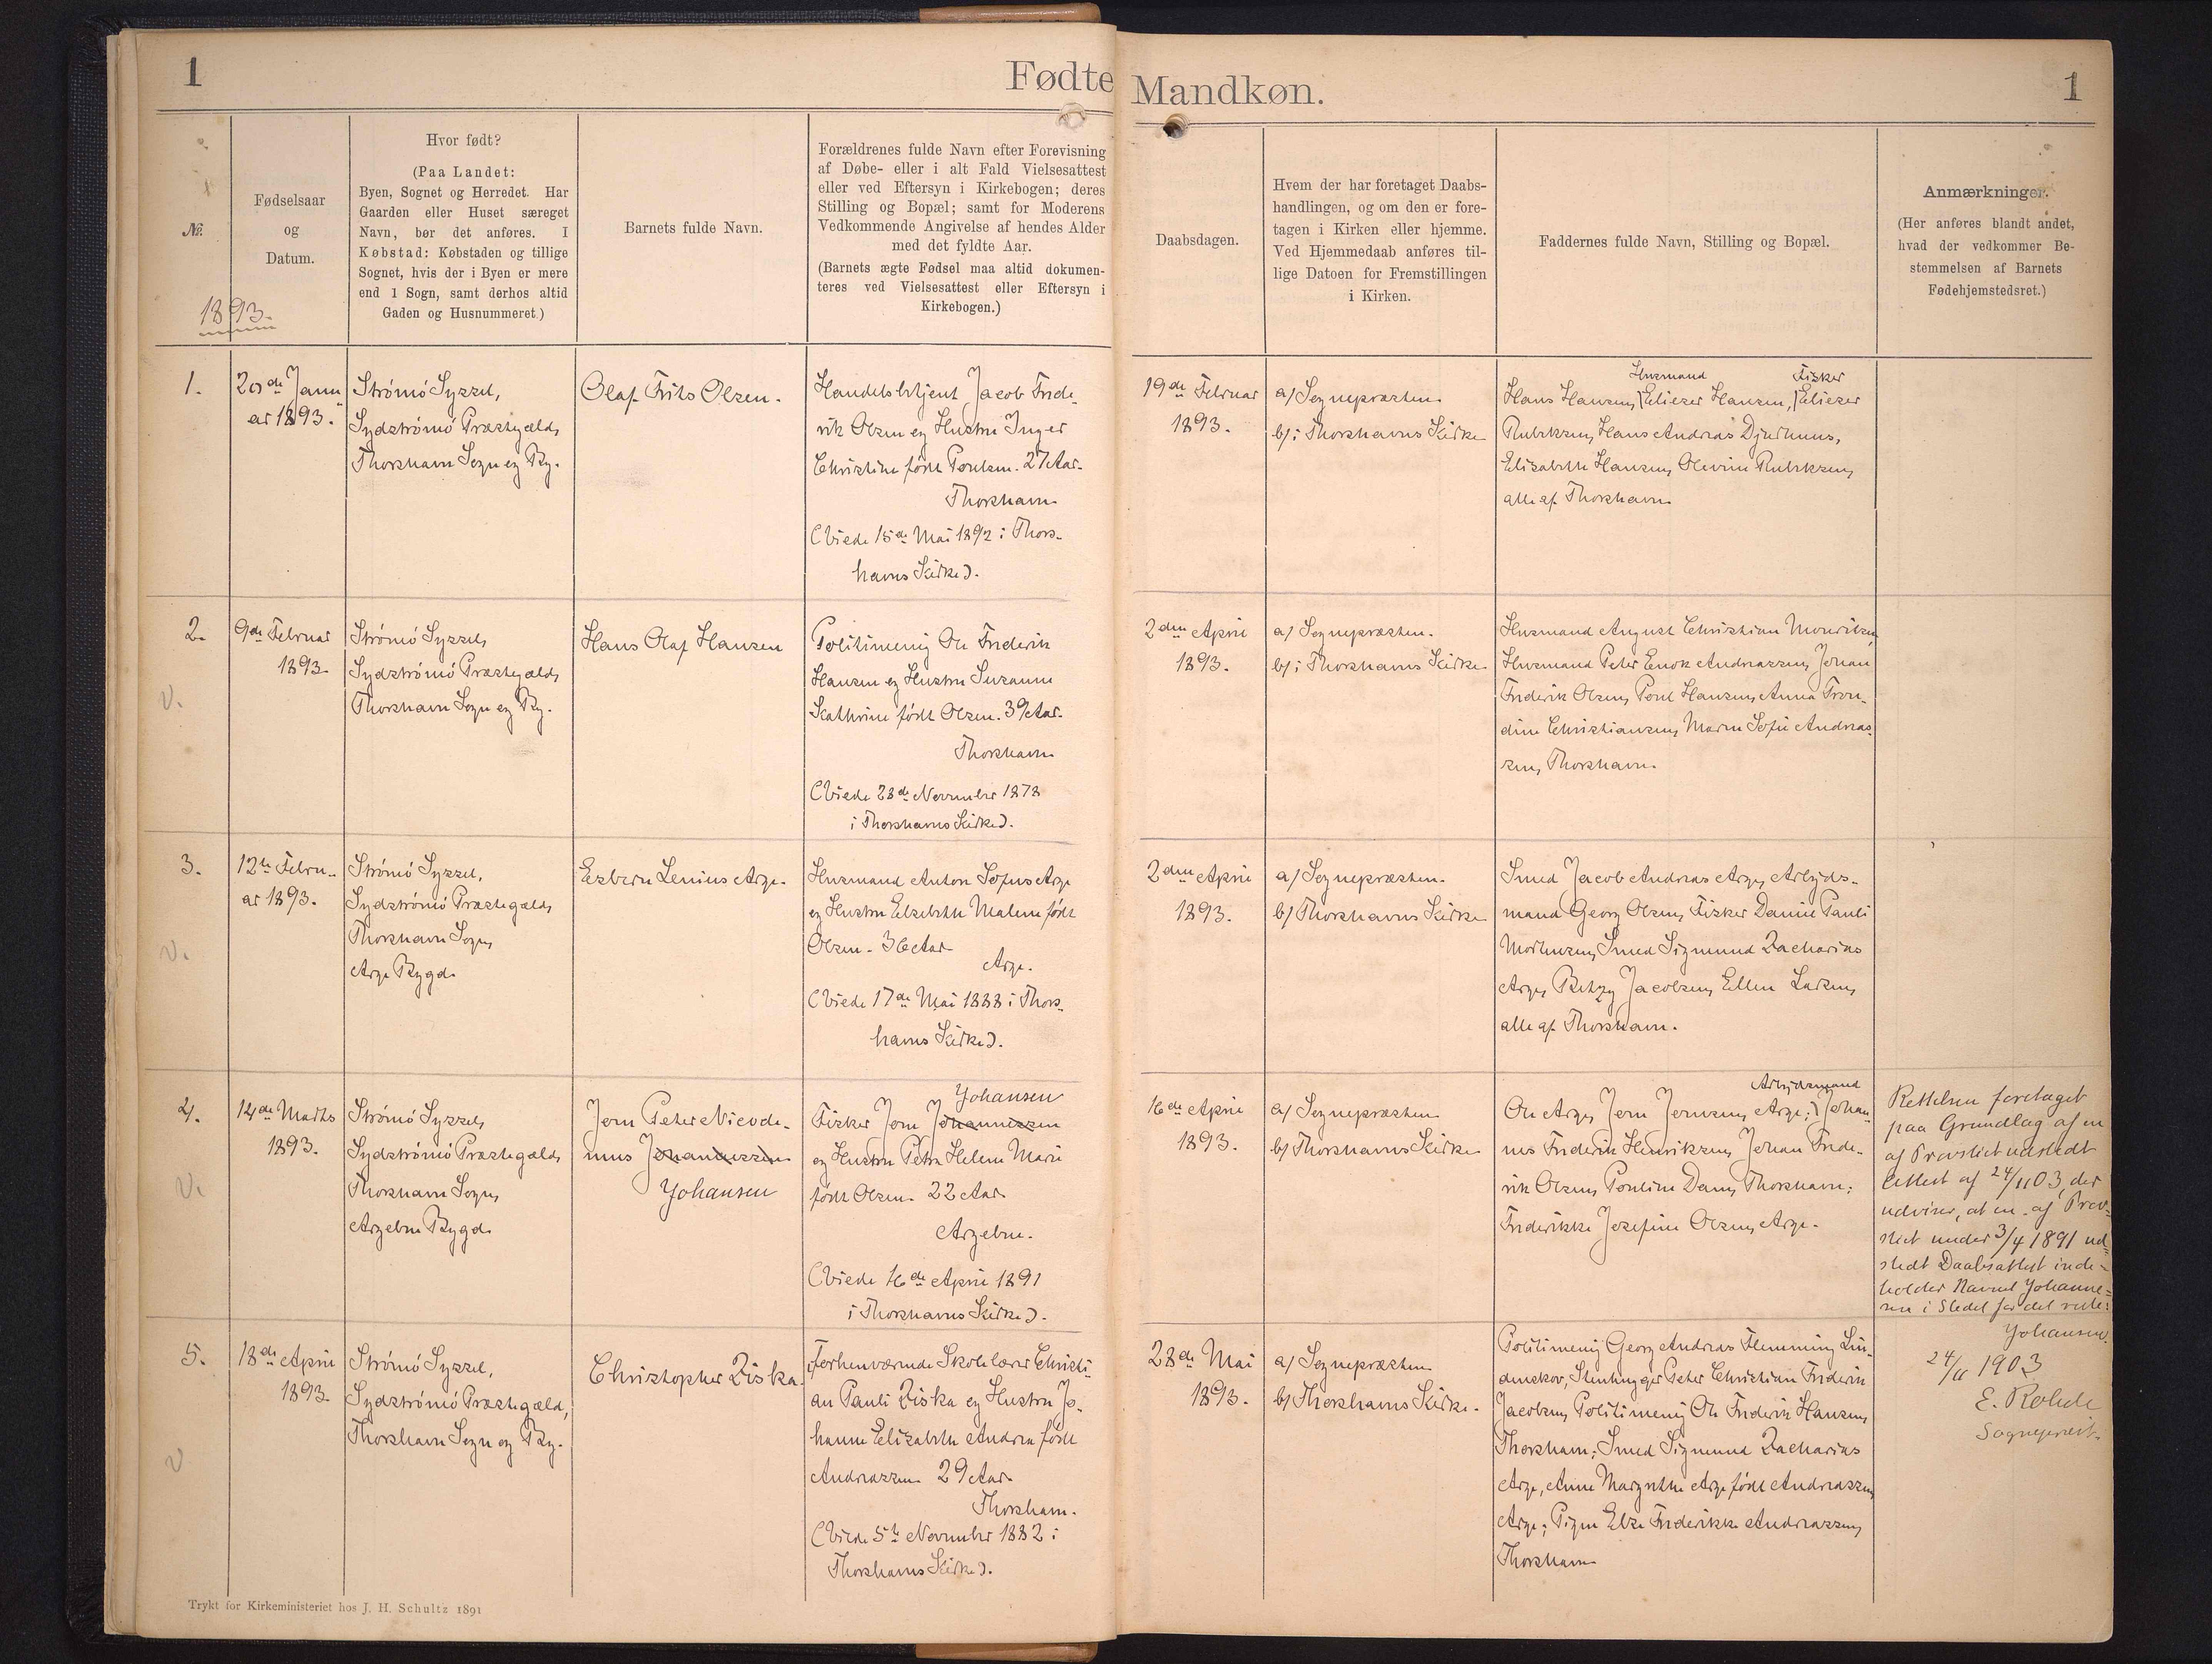 1
Fødte
Mandkøn.
1
No.
Fødselsaar
og
Datum.
1893.
Hvor født?
(Paa Landet:
Byen, Sognet og Herredet. Har
Gaarden eller Huset særeget
Navn, bør det anføres. I
Købstad: Købstaden og tillige
Sognet, hvis der i Byen er mere
end 1 Sogn, samt derhos altid
Gaden og Husnummeret.)
Barnets fulde Navn.
Forældrenes fulde Navn efter Forevisning
af Døbe- eller i alt Fald Vielsesattest
eller ved Eftersyn i Kirkebogen; deres
Stilling og Bopæl; samt for Moderens
Vedkommende Angivelse af hendes Alder
med det fyldte Aar.
(Barnets ægte Fødsel maa altid dokumen-
teres ved Vielsesattest eller Eftersyn i
Kirkebogen.)
Daabsdagen.
Hvem der har foretaget Daabs-
handlingen, og om den er fore-
tagen i Kirken eller hjemme.
Ved Hjemmedaab anføres til-
lige Datoen for Fremstillingen
i Kirken.
Faddernes fulde Navn, Stilling og Bopæl.
Anmærkninger.
(Her anføres blandt andet,
hvad der vedkommer Be-
stemmelsen af Barnets
Fødehjemstedsret.)
1.
20de Janu
ar 1893.
Strömö Syssel,
Sydströmö Præstegæld,
Thorshavn Sogn og By.
Olaf Frits Olsen.
Handelsbetjent Jacob Frede-
rik Olsen og Hustru Inger
Christine født Poulsen. 27 Aar.
Thorshavn
(Viede 15de Mai 1892 i Thors-
havns Kirke).
19de Februar
1893.
a) Sognepræsten.
b) i Thorshavns Kirke
Husmand Fisker
Hans Hansen, Eliezer Hansen, Eliezer
Rubeksen, Hans Andreas Djurhuus,
Elisabeth Hansen, Olevine Rubeksen,
alle af Thorshavn
2.
V.
9de Februar
1893.
Strömö Syssel,
Sydströmö Præstegæld,
Thorshavn Sogn og By.
Hans Olaf Hansen
Politimenig Ole Frederik
Hansen og Hustru Susanne
Kathrine født Olsen. 39 Aar.
Thorshavn
(Viede 28de November 1878
i Thorshavns Kirke).
2den April
1893.
a) Sognepræsten.
b) i Thorshavns Kirke
Husmand August Christian Mouritsen,
Husmand Peter Enok Andreassen, Johan
Frederik Olsen, Poul Hansen, Anna Tron-
dine Christiansen, Maren Sofie Andreas-
sen, Thorshavn.
3.
V.
12te Febru-
ar 1893.
Strömö Syssel,
Sydströmö Præstegæld,
Thorshavn Sogn,
Arge Bygd.
Esbern Lenius Arge.
Husmand Anton Sofus Arge
og Hustru Elsebeth Malene født
Olsen. 36 Aar
Arge.
(Viede 17de Mai 1888 i Thors-
havns Kirke).
2den April
1893.
a) Sognepræsten.
b) Thorshavns Kirke
Smed Jacob Andreas Arge, Arbejds-
mand Georg Olsen, Fisker Daniel Pauli
Mortensen, Smed Sigmund Zacharias
Arge, Betzy Jacobsen, Ellen Larsen,
alle af Thorshavn.
4.
V.
14de Marts
1893.
Strömö Syssel,
Sydströmö Præstegæld,
Thorshavn Sogn,
Argebø Bygd.
Jorn Peter Nicode-
mus Johannessen
Johansen
Johansen
Fisker Jorn Johannessen
og Hustru Petra Helene Marie
født Olsen. 22 Aar
Argebø.
(Viede 16de April 1891
i Thorshavns Kirke).
16de April
1893.
a) Sognepræsten
b) Thorshavns Kirke
Arbejdsmand
Ole Arge, Jorn Jornsen, Arge; Johan-
nes Frederik Henriksen, Johan Frede-
rik Olsen, Pouline Dam, Thorshavn;
Frederikke Josefine Olsen, Arge.
Rettelsen foretaget
paa Grundlag af en
af Provstiet udstedt
Attest af 24/11 03, der
udviser, at en af Prov-
stiet under 3/4 1891 ud-
stedt Daabsattest inde-
holder Navnet Johannes-
sen i Stedet for det rette:
Johansen.
24/11 1903
E. Rohde
Sognepræst.
5.
V
18de April
1893.
Strömö Syssel,
Sydströmö Præstegæld,
Thorshavn Sogn og By.
Christopher Ziska.
Forhenværende Skolelærer Christi-
an Pauli Ziska og Hustru Jo-
hanne Elisabeth Andrea født
Andreassen. 29 Aar
Thorshavn.
(Viede 5te November 1882 i
Thorshavns Kirke).
28de Mai
1893.
a) Sognepræsten
b) Thorshavns Kirke.
Politimenig Georg Andreas Flemming Lin-
denskov, Stenhugger Peter Christian Frederik
Jacobsen, Politimenig Ole Frederik Hansen,
Thorshavn; Smed Sigmund Zacharias
Arge, Anne Margrethe Arge født Andreassen,
Arge; Pigen Else Frederikke Andreassen,
Thorshavn
Trykt for Kirkeministeriet hos J. H. Schultz 1891